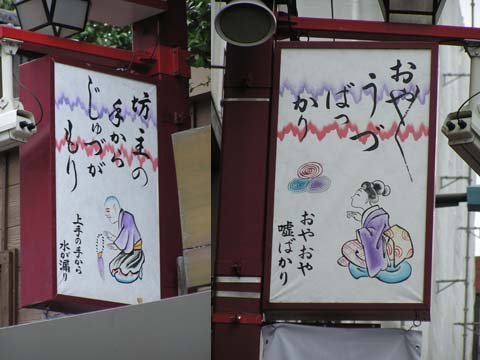 坊主の
手から
じゅづが
もり
上手の手から
水が漏り
おや〱
うづ
ばっ
かり
おやおや
嘘ばかり